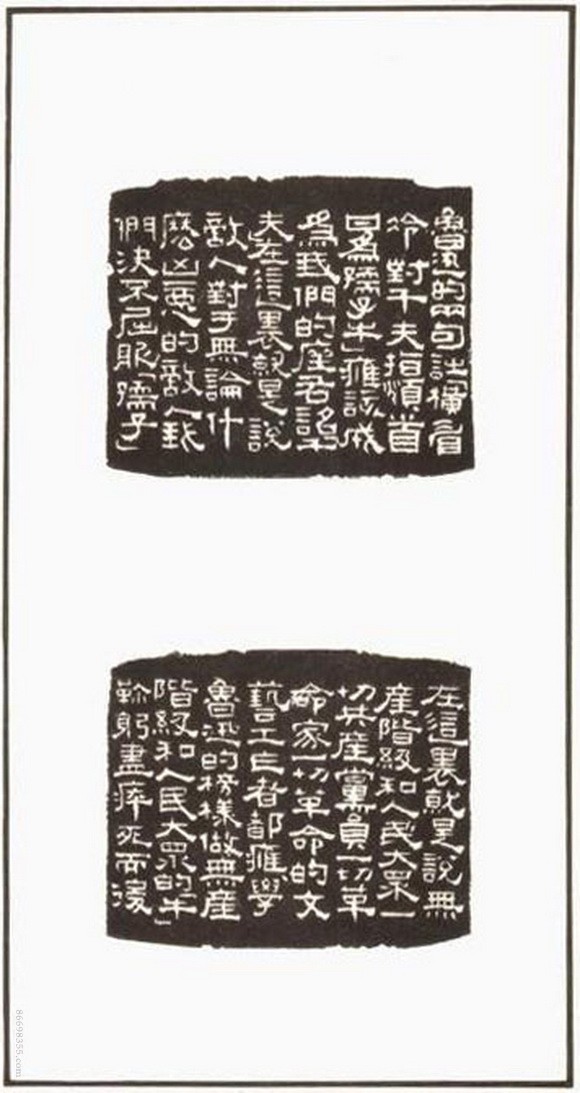 魯迅的兩句詩「橫眉
冷對千夫指頫首
甘為孺子牛」應該成
為我們的座右銘「千
夫」在這裏就是說
敵人對于無論什
麼凶惡的敵人我
們決不屈服「孺子」
在這裏就是說無
產階級和人民大眾一
切共產黨員一切革
命家一切革命的文
藝工作者都應學
魯迅的榜樣做無產
階級和人民大眾的「牛」
鞠躬盡瘁死而後
86698355.com